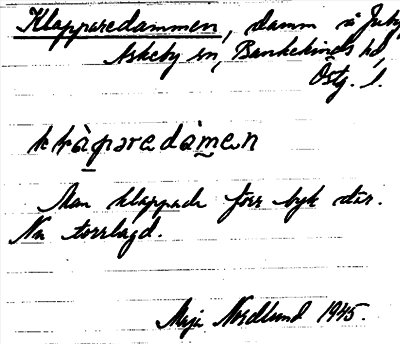 Klapparedammen, damm i
Askeby sn, Bankekinds hd,
Östg. l.
Man klappade förr byk där.
Nu torrlagd.
Maja Nordlund 1945.